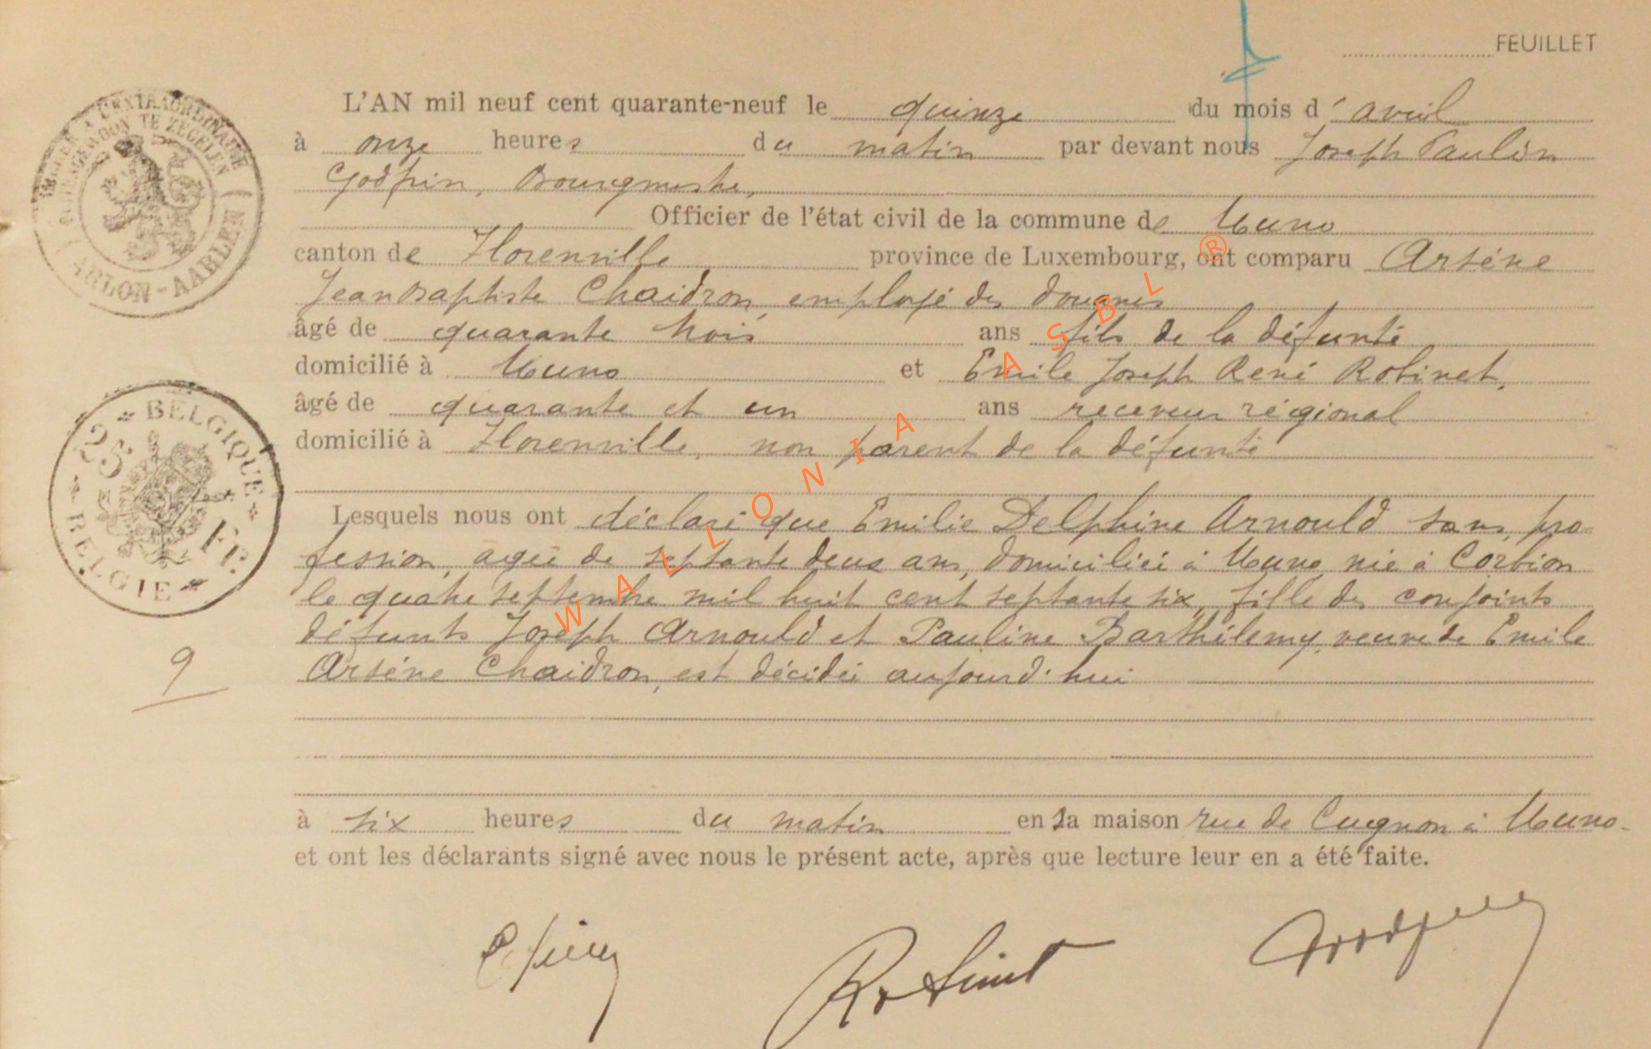 FEUILLET
L'AN mil neuf cent quarante-neuf le quinze du mois d'avril
à onze heures du matin par devant nous Joseph Paulin
Godfrin, Bourgmestre,
Officier de l'état civil de la commune de Muno
canton de Florenville province de Luxembourg, ont comparu Arsène
Jean Baptiste Chaidron, employé des douanes
âgé de quarante trois ans fils de la défunte
domicilié à Muno et Emile Joseph René Robinet,
âgé de quarante et un ans receveur régional
domicilié à Florenville, non parent de la défunte
Lesquels nous ont déclaré que Emilie Delphine Arnould sans pro-
fession, agée de septante deux ans, domiciliée à Muno, née à Corbion
le quatre septembre mil huit cent septante six, fille des conjoints
défunts Joseph Arnould et Pauline Barthélemy, veuve de Emile
Arsène Chaidron, est décédée aujourd'hui
à six heures du matin en sa maison rue de Cugnon à Muno.
et ont les déclarants signé avec nous le présent acte, après que lecture leur en a été faite.
Robinet
Godfrin
TIMBRE A L'EXTRAORDINAIRE
BUITENGEWOON TE ZEGELEN
ARLON-AARLEN
BELGIQUE
25 FR.
BELGIE
9
WALLONIA ASBL ®